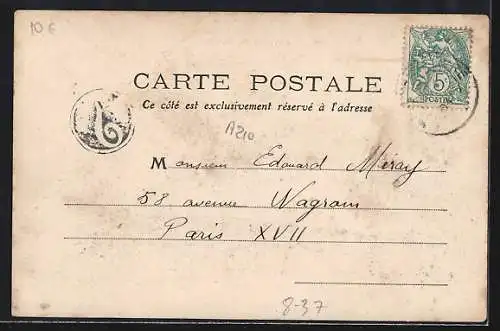 10 €
5
POSTES
CARTE POSTALE
Ce côté est exclusivement réservé à l'adresse
A210
Monsieur Edouard Méray
58 avenue Wagram
Paris XVII
8-37